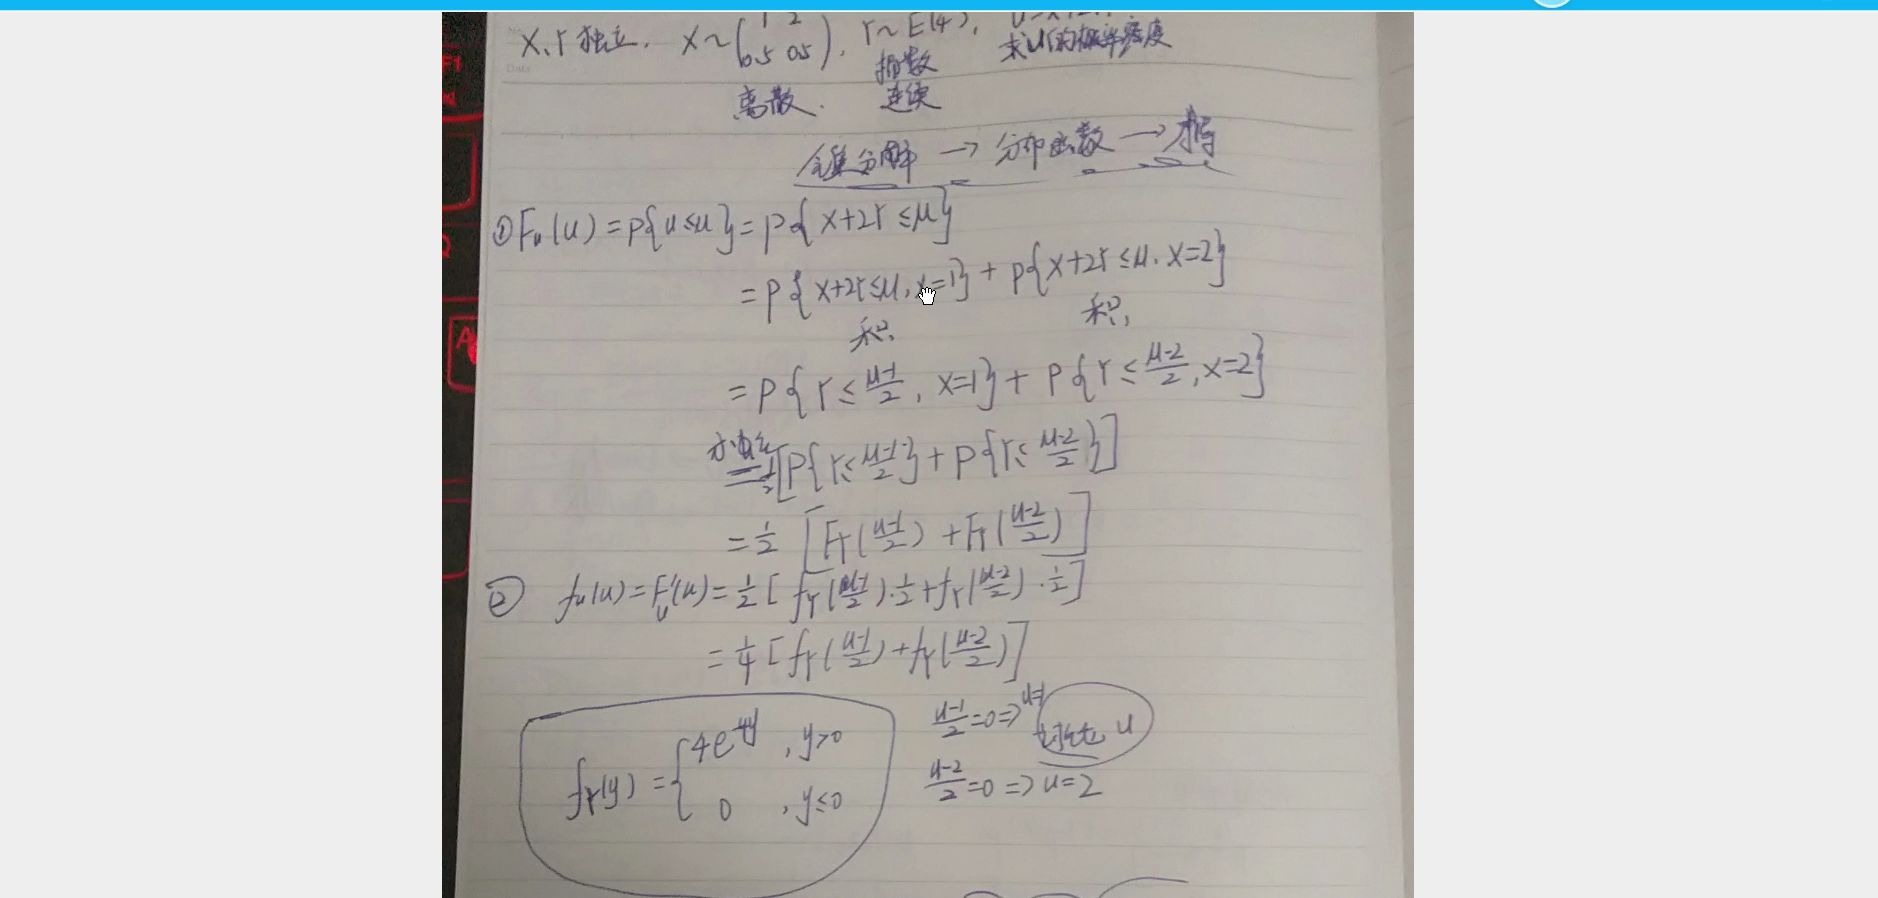 X、Y 独立. X~(1 2 0.5 0.5). Y~E(4), U=X+2Y.
指数 求U的概率密度
离散. 连续
全集分解 → 分布函数 → 求导
① Fu(u)=P{u≤u}=P{X+2Y≤u}
=P{X+2Y≤u, X=1}+P{X+2Y≤u, X=2}
积. 积.
=P{Y≤(u-1)/2, X=1}+P{Y≤(u-2)/2, X=2}
独立
=1/2[P{Y≤(u-1)/2}+P{Y≤(u-2)/2}]
=1/2[F_Y((u-1)/2)+F_Y((u-2)/2)]
② fu(u)=F'_U(u)=1/2[f_Y((u-1)/2)·1/2+f_Y((u-2)/2)·1/2]
=1/4[f_Y((u-1)/2)+f_Y((u-2)/2)]
f_Y(y)={4e^{-4y}, y>0
0, y≤0
(u-1)/2=0⇒u=1
讨论 u
(u-2)/2=0⇒u=2